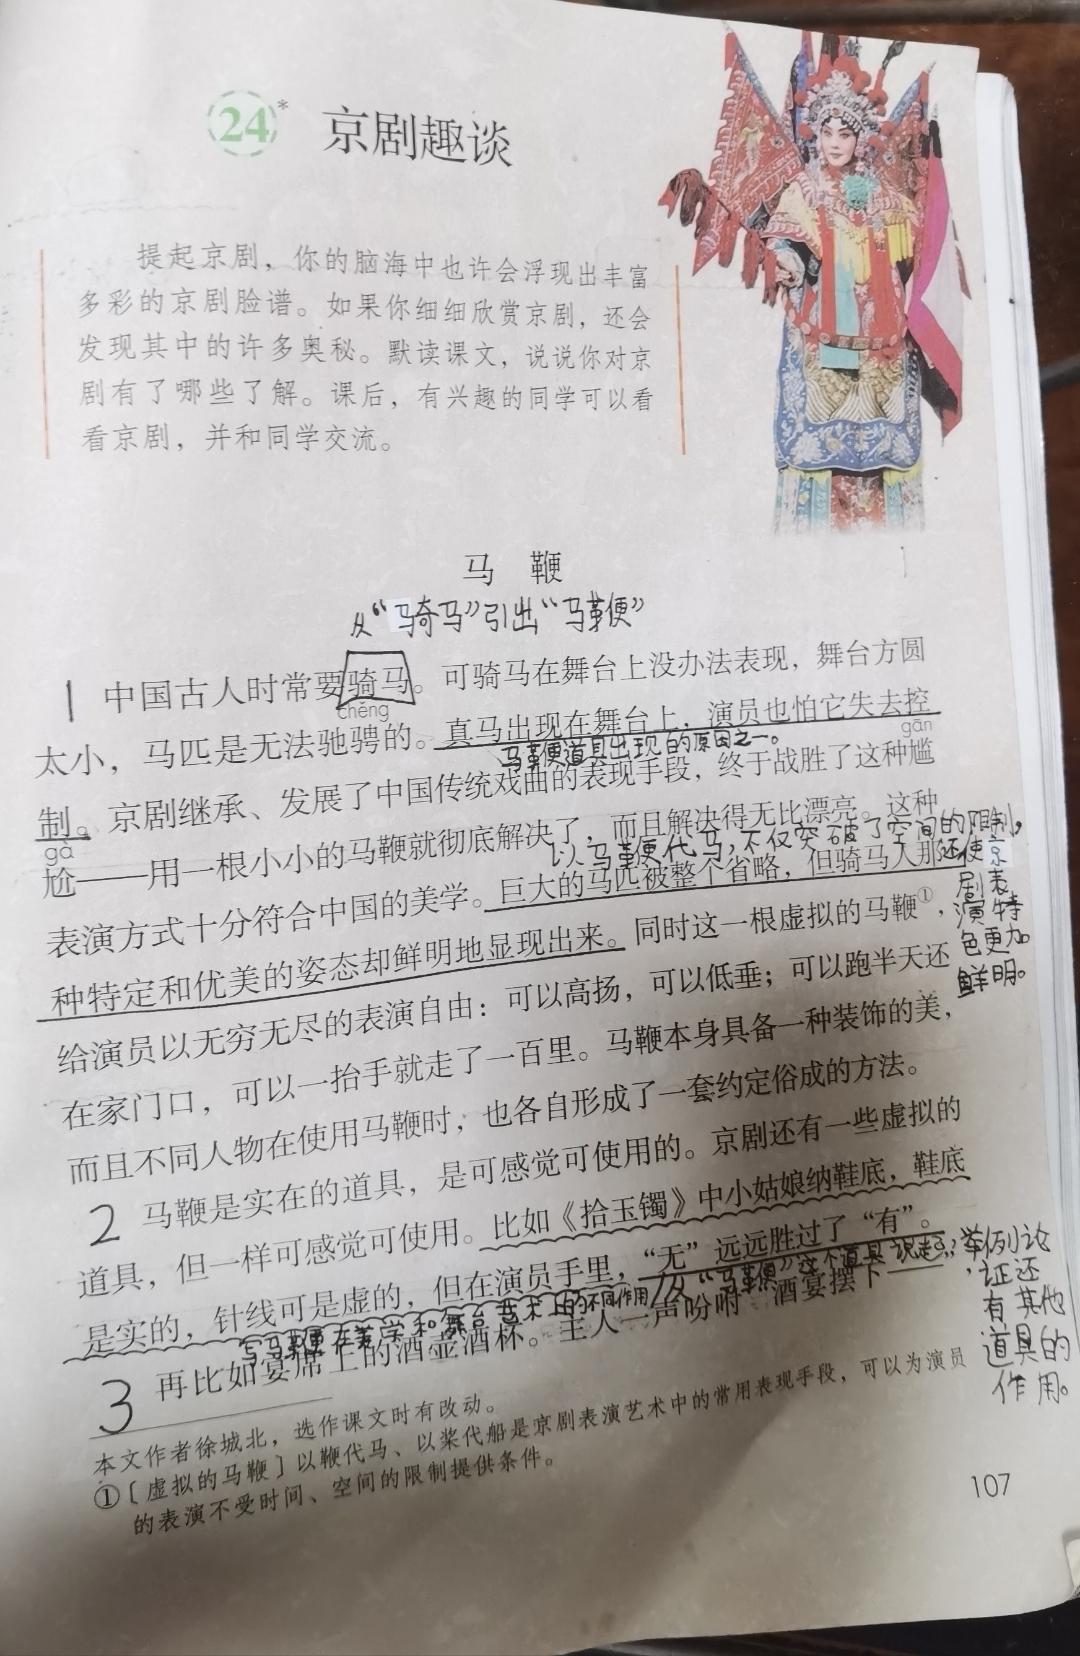 24*
京剧趣谈
提起京剧，你的脑海中也许会浮现出丰富
多彩的京剧脸谱。如果你细细欣赏京剧，还会
发现其中的许多奥秘。默读课文，说说你对京
剧有了哪些了解。课后，有兴趣的同学可以看
看京剧，并和同学交流。
马 鞭
从“骑马”引出“马鞭”
1 中国古人时常要骑马。可骑马在舞台上没办法表现，舞台方圆
chěng
太小，马匹是无法驰骋的。真马出现在舞台上，演员也怕它失去控
马鞭道具出现的原因之一。
gān
制。京剧继承、发展了中国传统戏曲的表现手段，终于战胜了这种尴
gà
尬——用一根小小的马鞭就彻底解决了，而且解决得无比漂亮。这种
以马鞭代马，不仅突破了空间的限制，
还使京
剧表
演特
色更加
鲜明。
表演方式十分符合中国的美学。巨大的马匹被整个省略，但骑马人那
种特定和优美的姿态却鲜明地显现出来。同时这一根虚拟的马鞭①，
给演员以无穷无尽的表演自由：可以高扬，可以低垂；可以跑半天还
在家门口，可以一抬手就走了一百里。马鞭本身具备一种装饰的美，
而且不同人物在使用马鞭时，也各自形成了一套约定俗成的方法。
2 马鞭是实在的道具，是可感觉可使用的。京剧还有一些虚拟的
道具，但一样可感觉可使用。比如《拾玉镯》中小姑娘纳鞋底，鞋底
是实的，针线可是虚的，但在演员手里，“无”远远胜过了“有”。
从“马鞭”这个道具说起，举例论
证还
有其他
道具的
作用。
写马鞭在美学和舞台艺术上的不同作用
3 再比如宴席上的酒壶酒杯。主人一声吩咐“酒宴摆下——
本文作者徐城北，选作课文时有改动。
①〔虚拟的马鞭〕以鞭代马、以桨代船是京剧表演艺术中的常用表现手段，可以为演员
的表演不受时间、空间的限制提供条件。
107